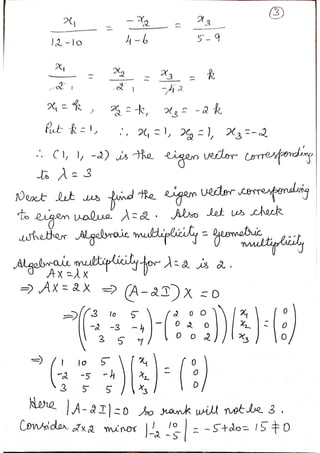 ③
x₁/12-10 = -x₂/4-6 = x₃/5-9
x₁/2₁ = x₂/2₁ = x₃/-4₂ = k
x₁ = k, x₂ = -k, x₃ = -2k
Put k = 1, ∴ x₁ = 1, x₂ = 1, x₃ = -2
∴ (1, 1, -2) is the eigen vector corresponding
to λ = 3
Next let us find the eigen vector corresponding
to eigen value λ = 2. Also let us check
whether Algebraic multiplicity = Geometric
multiplicity
Algebraic multiplicity for λ = 2 is 2.
AX = λX
⇒ AX = 2X ⇒ (A - 2I) X = 0
⇒ ((3 10 5; -2 -3 -4; 3 5 7) - (2 0 0; 0 2 0; 0 0 2)) (x₁; x₂; x₃) = (0; 0; 0)
⇒ (1 10 5; -2 -5 -4; 3 5 5) (x₁; x₂; x₃) = (0; 0; 0)
Here |A - 2I| = 0 so rank will not be 3.
Consider 2x2 minor |1 10; -2 -5| = -5+20 = 15 ≠ 0